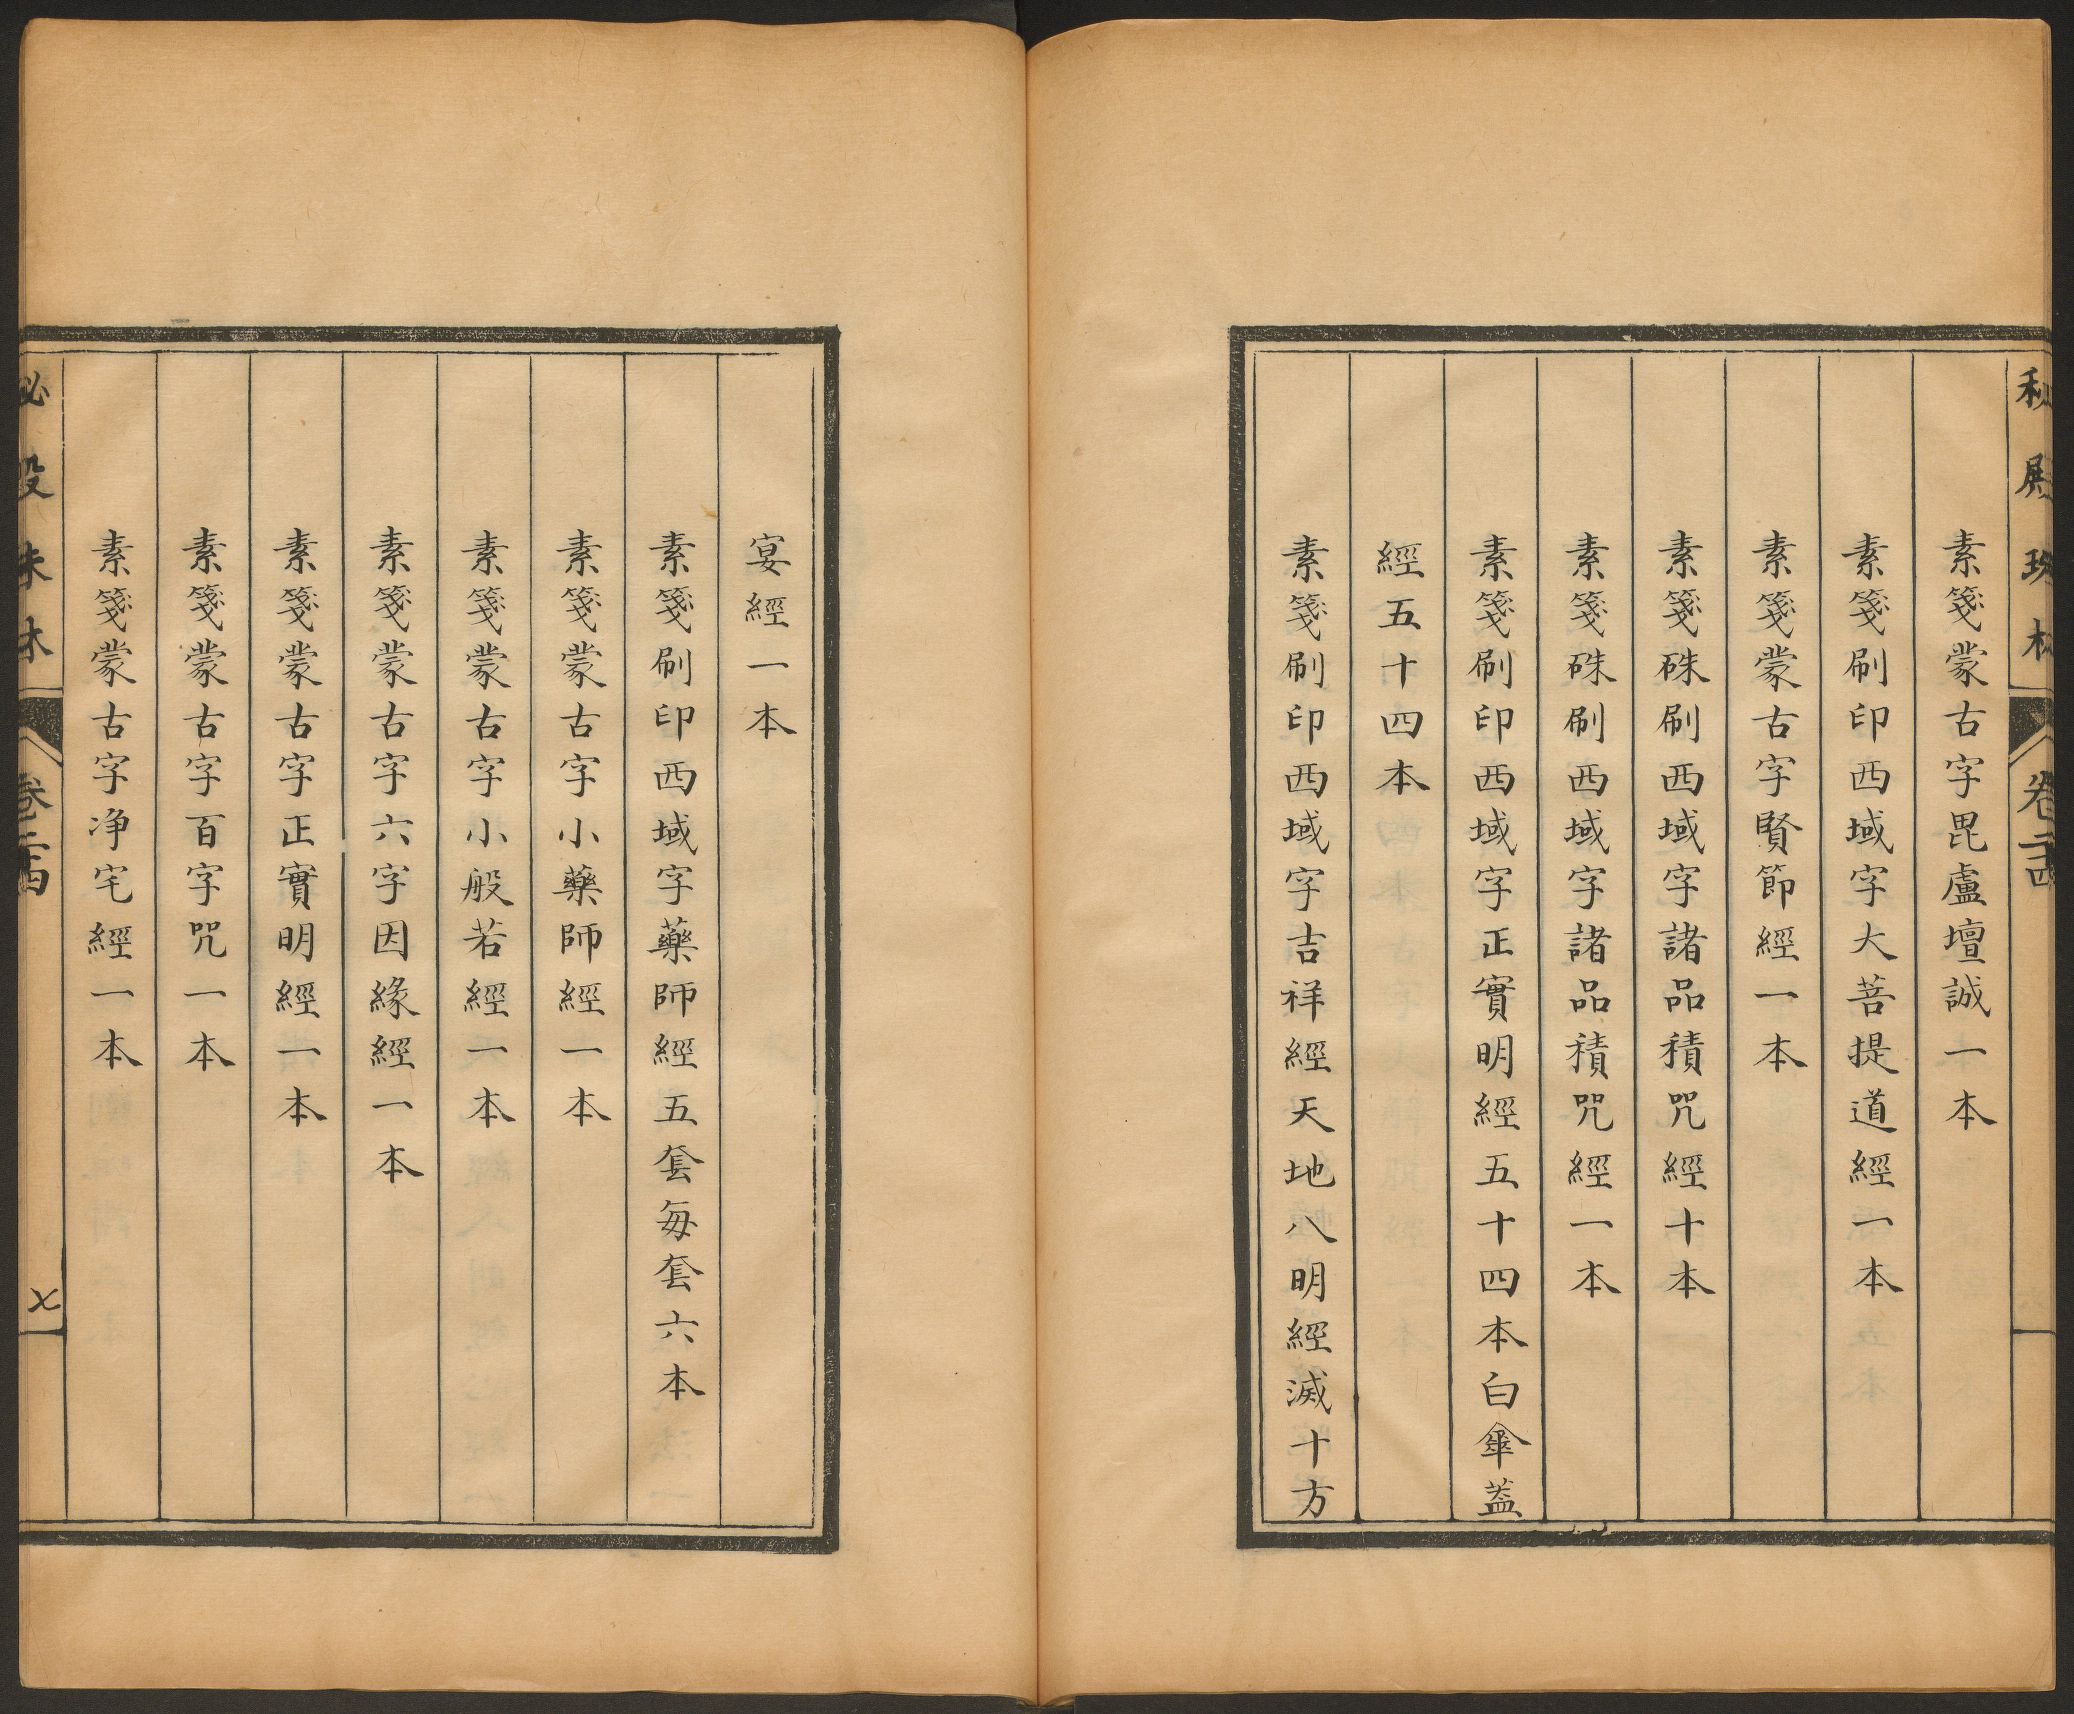 秘殿珠林 卷二十四
素箋蒙古字毘盧壇誠一本
素箋刷印西域字大菩提道經一本
素箋蒙古字賢節經一本
素箋硃刷西域字諸品積咒經十本
素箋硃刷西域字諸品積咒經一本
素箋刷印西域字正實明經五十四本白傘葢
經五十四本
素箋刷印西域字吉祥經天地八明經滅十方
宴經一本
素箋刷印西域字藥師經五套每套六本
素箋蒙古字小藥師經一本
素箋蒙古字小般若經一本
素箋蒙古字六字因緣經一本
素箋蒙古字正實明經一本
素箋蒙古字百字咒一本
素箋蒙古字净宅經一本
秘殿朱林 卷二十四 七